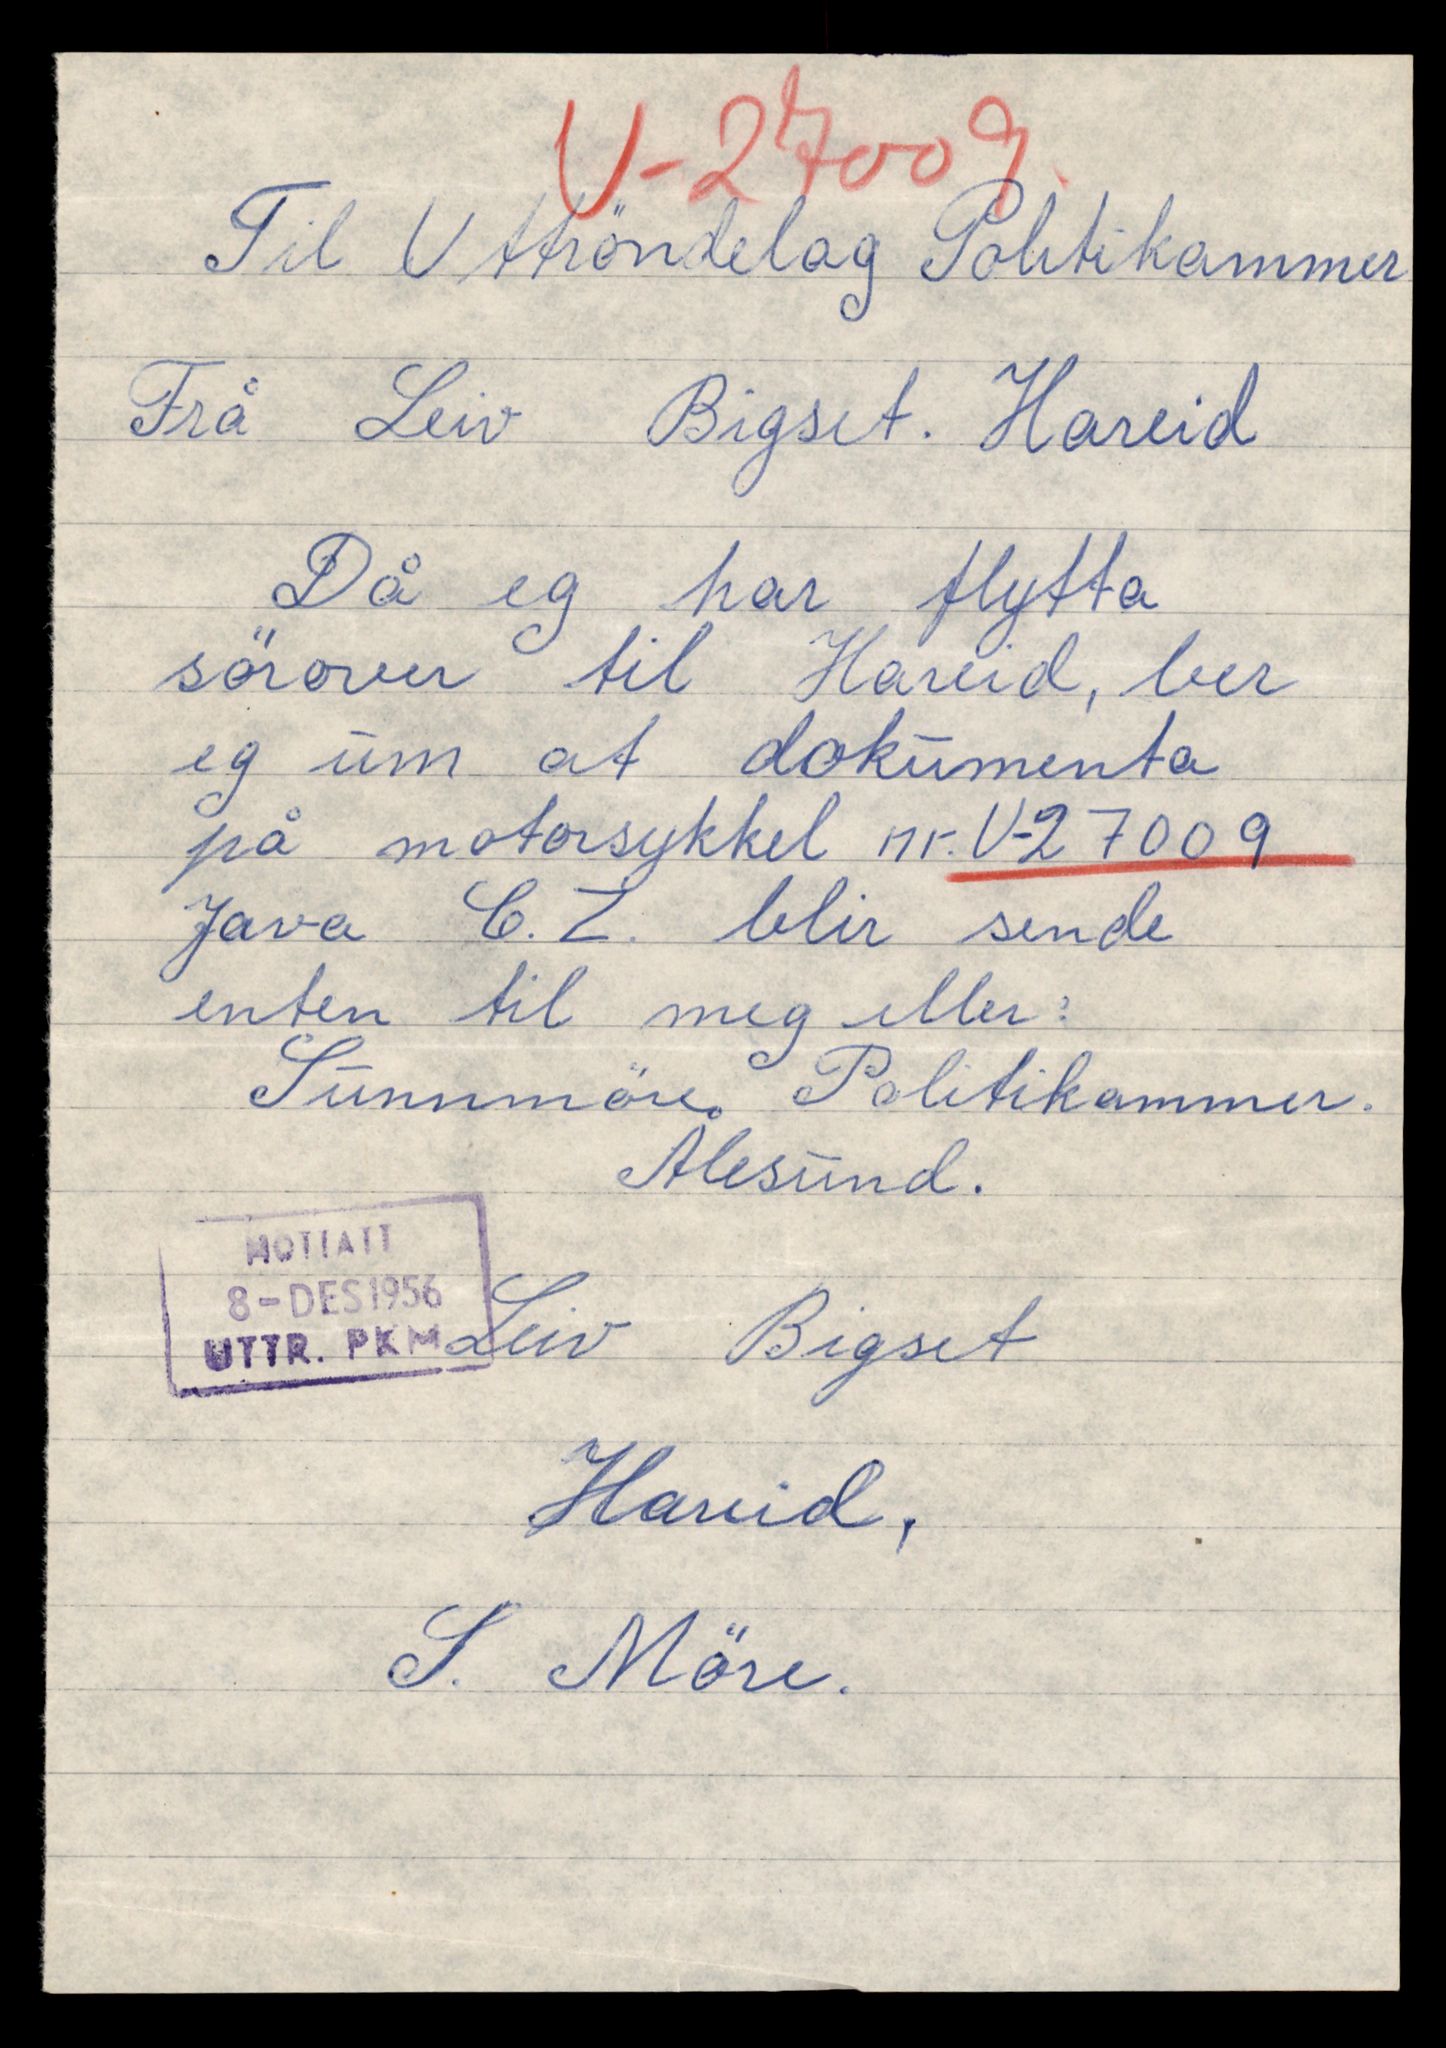 U-27009.
Til Uttröndelag Politikammer
Frå Leiv Bigset. Hareid
Då eg har flytta
sörover til Hareid, ber
eg um at dokumenta
på motorsykkel nr. U-27009
Java C.Z. blir sende
enten til meg eller:
Sunnmöre Politikammer.
Ålesund.
MOTTATT
8-DES 1956
UTTR. PKM
Leiv Bigset
Hareid,
S. Möre.